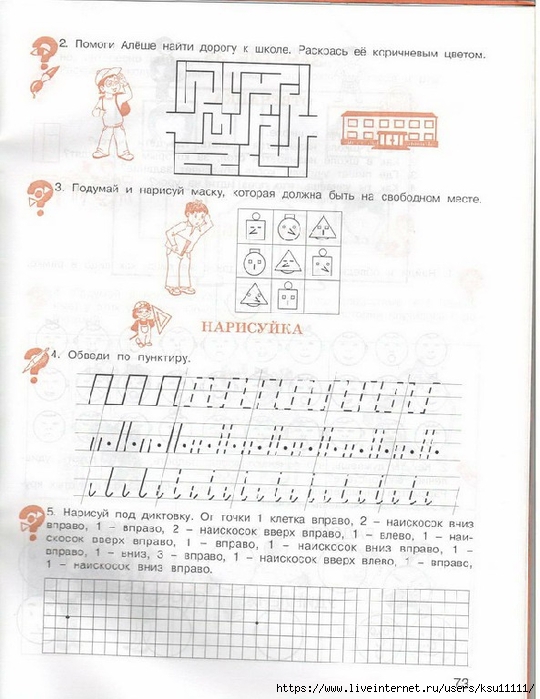 2. Помоги Алёше найти дорогу к школе. Раскрась её коричневым цветом.
3. Подумай и нарисуй маску, которая должна быть на свободном месте.
НАРИСУЙКА
4. Обведи по пунктиру.
5. Нарисуй под диктовку. От точки 1 клетка вправо, 2 – наискосок вниз
вправо, 1 – вправо, 2 – наискосок вверх вправо, 1 – влево, 1 – наи-
скосок вверх вправо, 1 – вправо, 1 – наискосок вниз вправо, 1 –
вправо, 1 – вниз, 3 – вправо, 1 – наискосок вверх влево, 1 – вправо,
1 – наискосок вниз вправо.
73
https://www.liveinternet.ru/users/ksu11111/